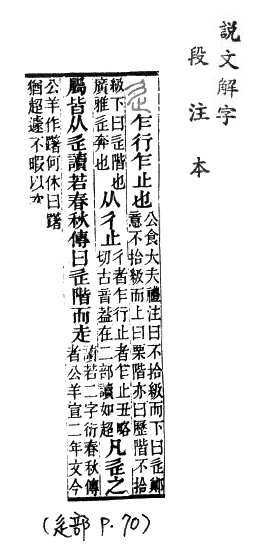 說文解字
段注本
辵 乍行乍止也
公食大夫禮注曰不拾級而下曰辵鄭
意不拾級而上曰栗階亦曰歷階不拾
級下曰辵階也
廣雅辵奔也
从彳止
彳者乍行止者乍止丑略
切古音葢在二部讀如超
凡辵之
屬皆从辵讀若春秋傳曰辵階而走
讀若二字衍春秋傳
者公羊宣二年文今
公羊作躇何休曰躇
猶超遽不暇以次
(辵部 P.70)